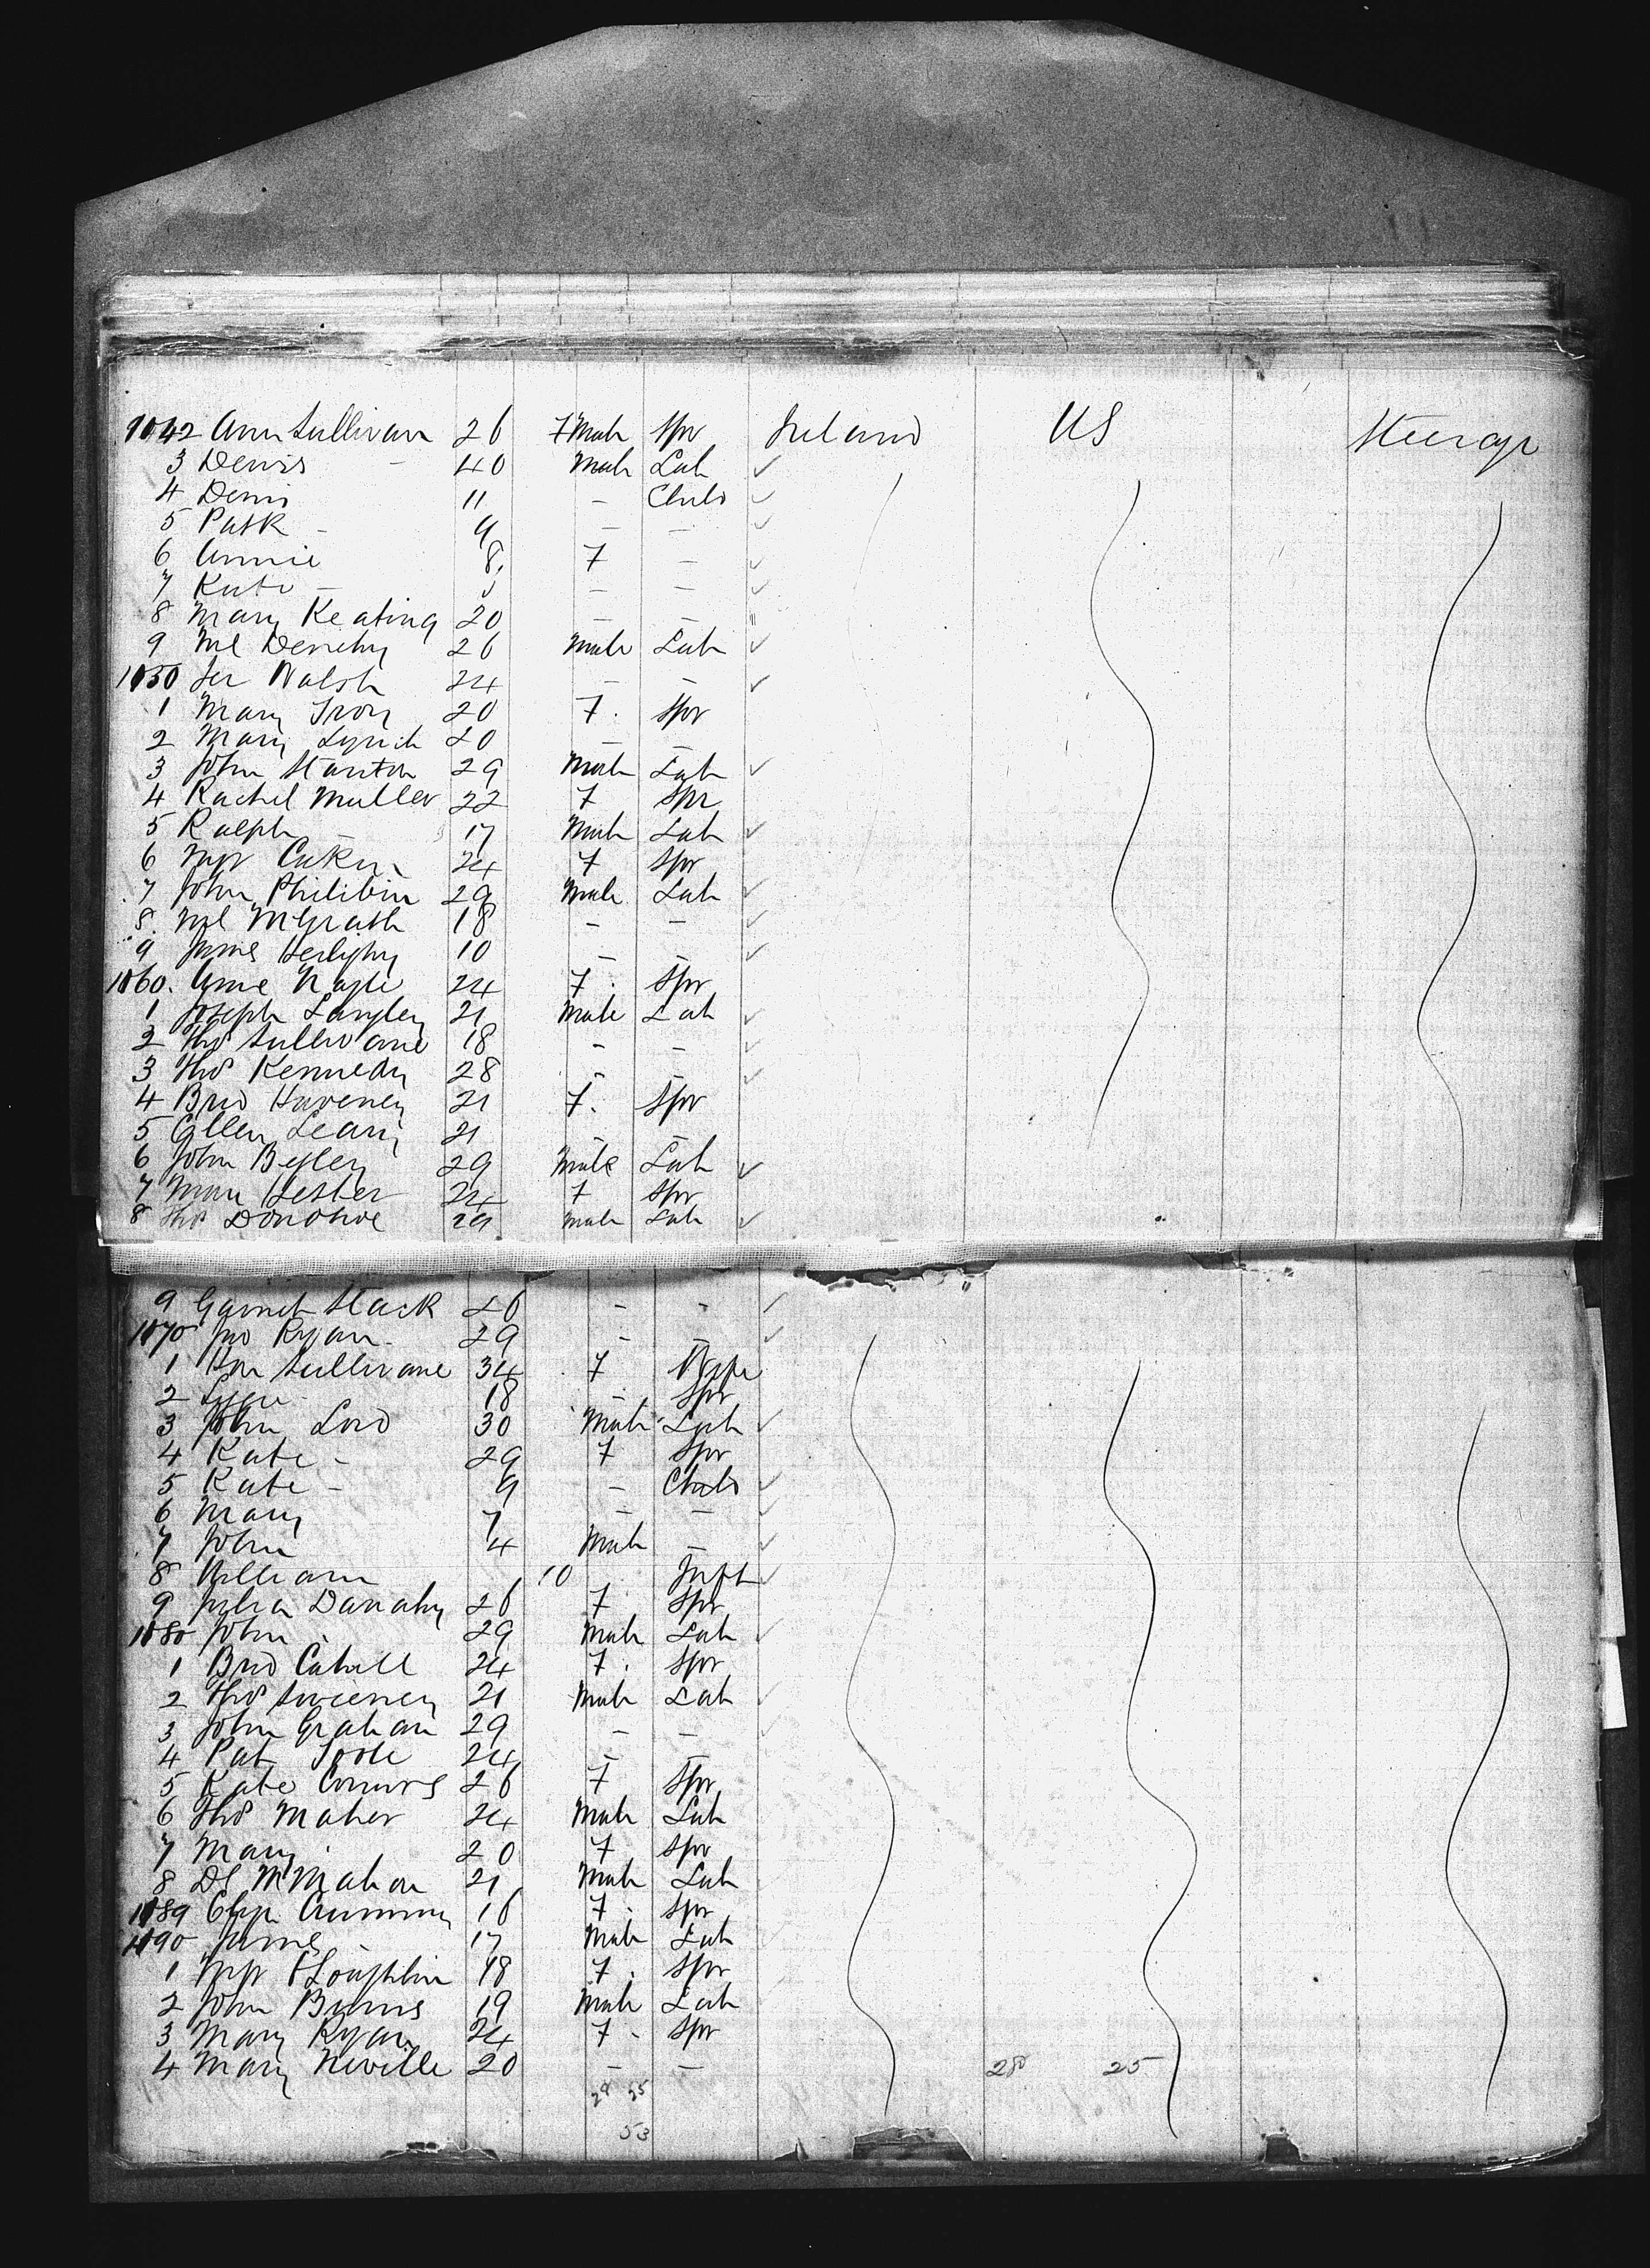 1042 Ann Sullivan 26 F Male Spr Ireland US Steerage
3 Denis - 40 Male Lab ✓
4 Denis 11 - Child ✓
5 Patk - 9 - - ✓
6 Annie 8 F - ✓
7 Kate - - - ✓
8 Mary Keating 20 - -
9 Ml Denehy 26 Male Lab ✓
1050 Jer Walsh 24 - - ✓
1 Mary Troy 20 F. Spr
2 Mary Lynch 20 - -
3 John Stanton 29 Male Lab ✓
4 Rachel Muller 22 F Spr
5 Ralph - 17 Male Lab ✓
6 24 F Spr
7 John Philibin 29 Male Lab ✓
8 Ml McGrath 18 - - ✓
9 James Herlyhy 10 - - ✓
1060. Anne Nagle 24 F. Spr
1 Joseph Langley 21 Male Lab ✓
2 Thos Sullivane 18 - - ✓
3 Thos Kennedy 28 - - ✓
4 Brid Haveney 21 F. Spr
5 Ellen Leary 21 - -
6 John Begley 29 Male Lab ✓
7 Mary Lester 24 F Spr
8 Thos Donohoe 29 Male Lab ✓
9 Garrett Stack 26 - - ✓
1070 Jno Ryan - 29 - - ✓
1 Han Sullivane 34 F Wife
2 18 - Spr
3 John Lord 30 Male Lab ✓
4 Kate - 29 F Spr
5 Kate - 9 - Child ✓
6 Mary 7 - - ✓
7 John 4 Male - ✓
8 William 10 Inft ✓
9 Julia Danahy 26 F Spr
1080 John 29 Male Lab ✓
1 Brid Cahill 24 F. Spr
2 Thos Sweeney 21 Male Lab
3 John Graham 29 - -
4 Pat Toole 24 - -
5 Kate Connors 26 F Spr
6 Thos Maher 24 Male Lab
7 Mary 20 F Spr
8 Dl McMahon 21 Male Lab
1089 16 F. Spr
1090 James 17 Male Lab
1 O'Loughlin 18 F. Spr
2 John Burns 19 Male Lab
3 Mary Ryan 24 F - Spr
4 Mary Neville 20 - - 28 25
28 25
53